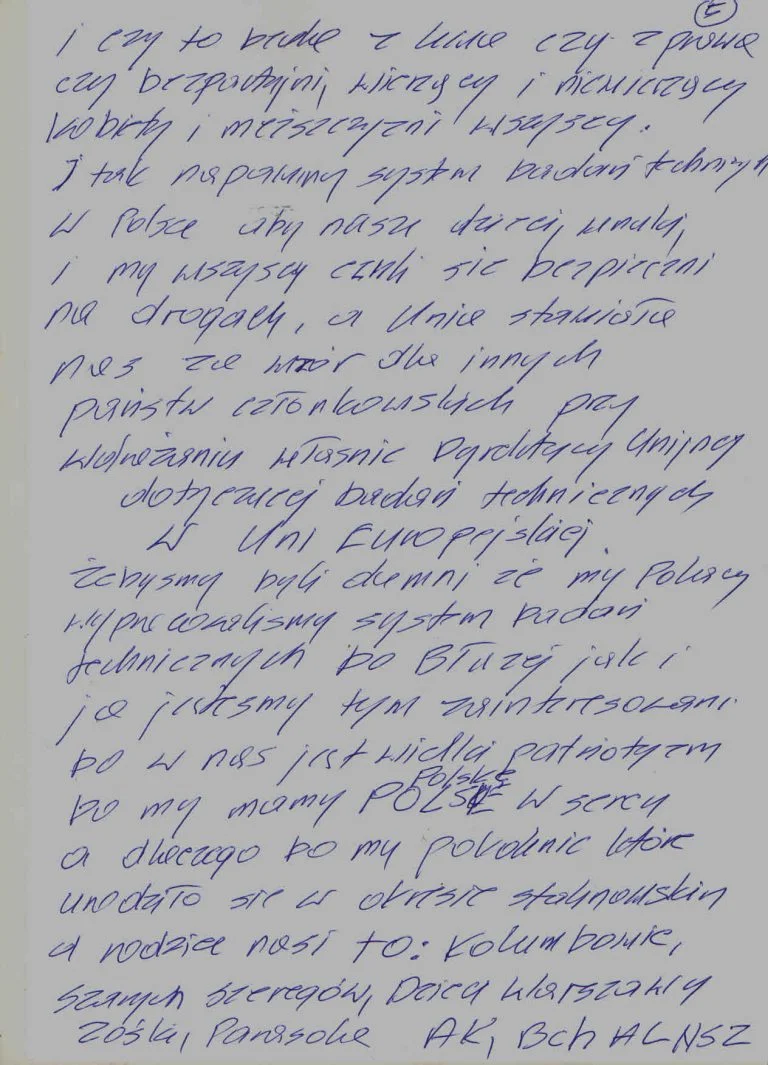 E
i czy to będe z lewa czy z prawa
czy bezpartyjni, wierzący i niewierzący
kobiety i meiszczyzni wszyszcy.
I tak napawmy system badań technicznych
w Polsce aby nasze dzieci, wnuki,
i my wszyscy czuli sie bezpieczni
na drogach, a Unia stawiała
nas za wzór dla innych
państw członkowskich przy
wdrażaniu własnie Dyrektywy Unijnej
dotyczącej badań technicznych
w Uni Europejskiej.
Żebysmy byli dumni że my Polacy
wypracowalismy system badań
technicznych bo Błażej jak i
ja jestesmy tym zainteresowani
bo w nas jest wielki patriotyzm
Polskę
bo my mamy POLSKĘ w sercy
a dlaczego bo my pokolenie które
urodziło sie w okresie stalinowskim
a rodzice nasi to: Kolumbowie,
szarych szeregów, Dzieci Warszawy
Zośki, Parasola AK, BCh AL NSZ